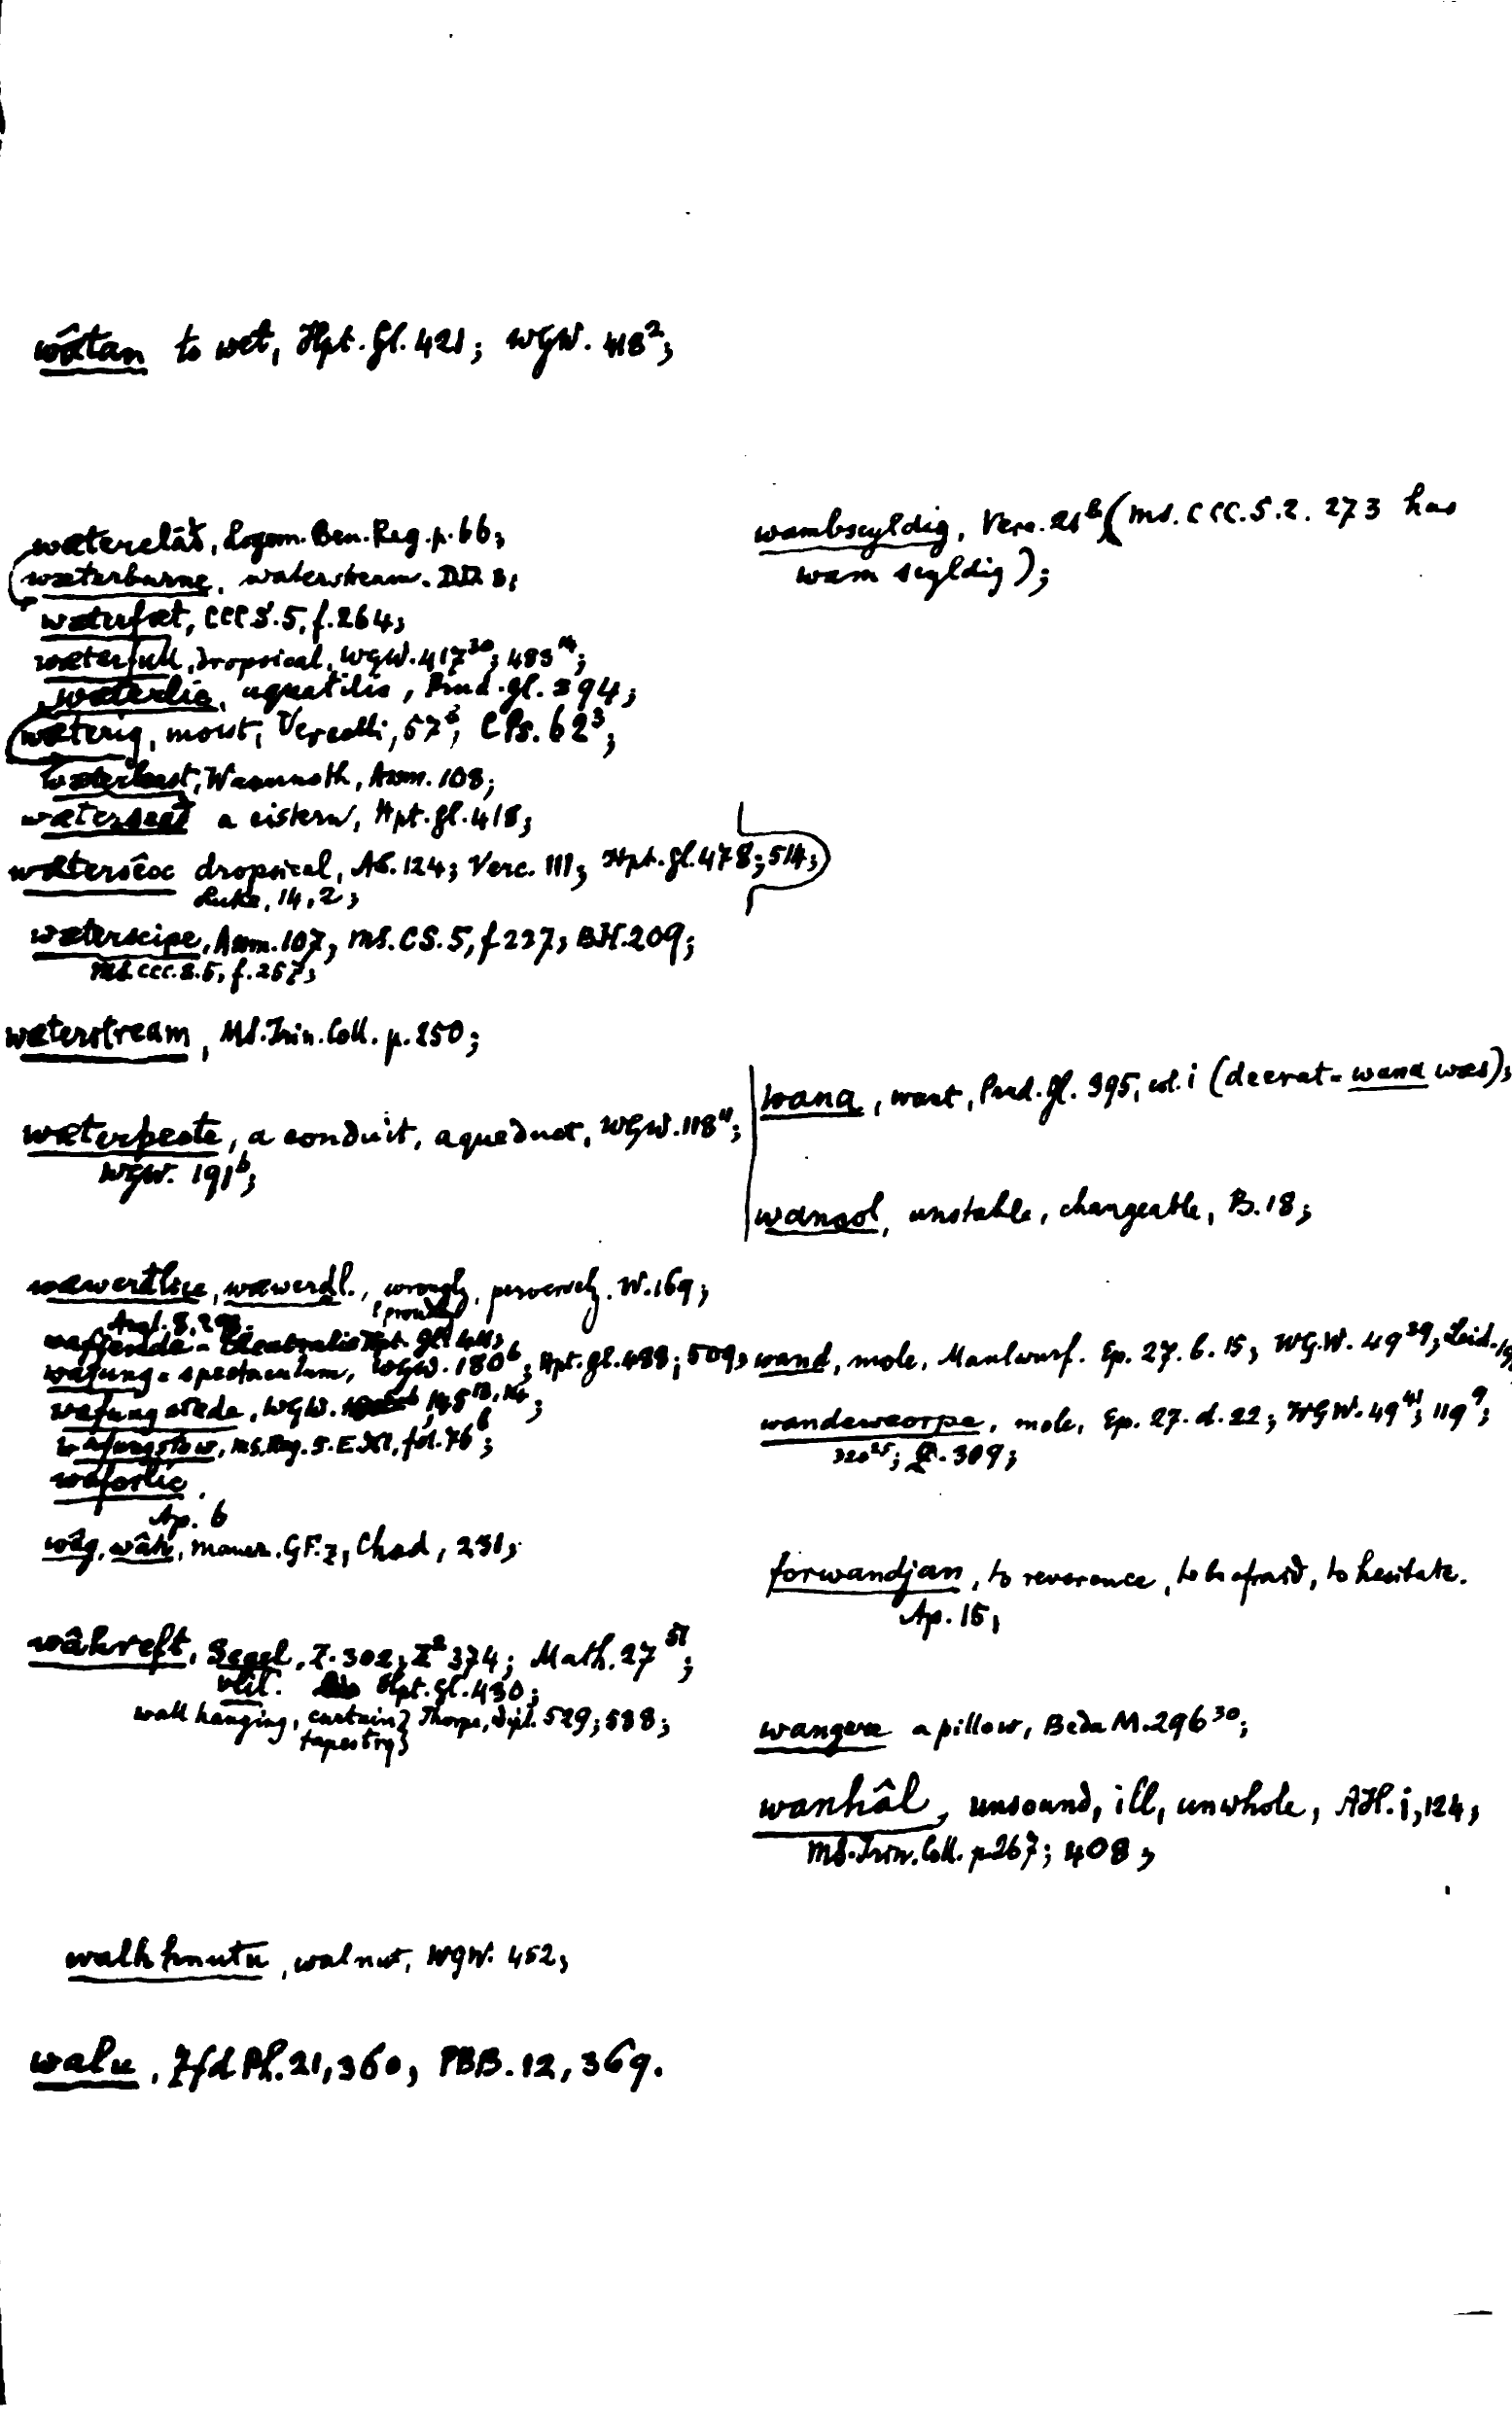 wǣtan to wet, Hpt. Gl. 421; WGW. 418²;
wæterclâð, Logem. Ben. Reg. p. 66;
wæterburne, waterstream. DD 3;
wæterfæt, CCC S.5, f. 264;
wæterfull, dropsical, WGW. 417³⁰; 493¹⁴;
wæterlic, aquatilis, Prud. gl. 394;
wæterig, moist, Vercelli, 57ᵇ; CPs. 62³;
wæterleast, Assm. 108;
wæterseað a cistern, Hpt. gl. 418;
wætersêoc dropsical, AS. 124; Verc. 111; Hpt. gl. 478; 514;
Luke, 14, 2;
wæterscipe, Assm. 107; MS. CS. 5, f 227; BH. 209;
MS CCC. S. 5, f. 257;
wæterstream, MS. Trin. Coll. p. 250;
wæterþeote, a conduit, aqueduct, WGW. 118¹¹;
WGW. 191⁶;
wæwerdlice, wæwerdl., wrongly, perversely. W. 169;
Angl. 8, 298.
waffende = theatralis Hpt. gl. 411;
wafung = spectaculum, WGW. 180⁶; Hpt. gl. 488; 509;
wafungstede, WGW. 145¹³·¹⁴;
wafungstow, MS. Reg. 5. E. XI, fol. 76ᵇ;
waforlic
Ap. 6
wâg, wâh, mauer. GF. 7, Chad, 231;
wâhreft, Segel, Z. 302; Z² 374; Math. 27⁵¹;
velil. Hpt. gl. 430;
wall hanging, curtain} Thorpe, dipl. 529; 538;
tapestry}
walhhnutu, walnut, WGW. 452;
walu, ZfdPh. 21, 360, PBB. 12, 369.
wambscyldig, Verc. 21ᵇ (MS. CCC. S. 2. 273 has
wam scyldig);
wana, want, Prud. gl. 395, col. i (deerat = wana wæs);
wancol, unstable, changeable, B. 18;
wand, mole, Maulwurf. Ep. 27. b. 15; WG.W. 49³⁹; Leid. 19
wandeweorpe, mole, Ep. 27. d. 22; WGW. 49⁴¹; 119⁹;
320²⁵; Æ. 309;
forwandjan, to reverence, to be afraid, to hesitate.
Ap. 15;
wangere a pillow, Beda M. 296³⁰;
wanhâl, unsound, ill, unwhole, AH. i, 124;
MS. Trin. Coll. p. 267; 408;